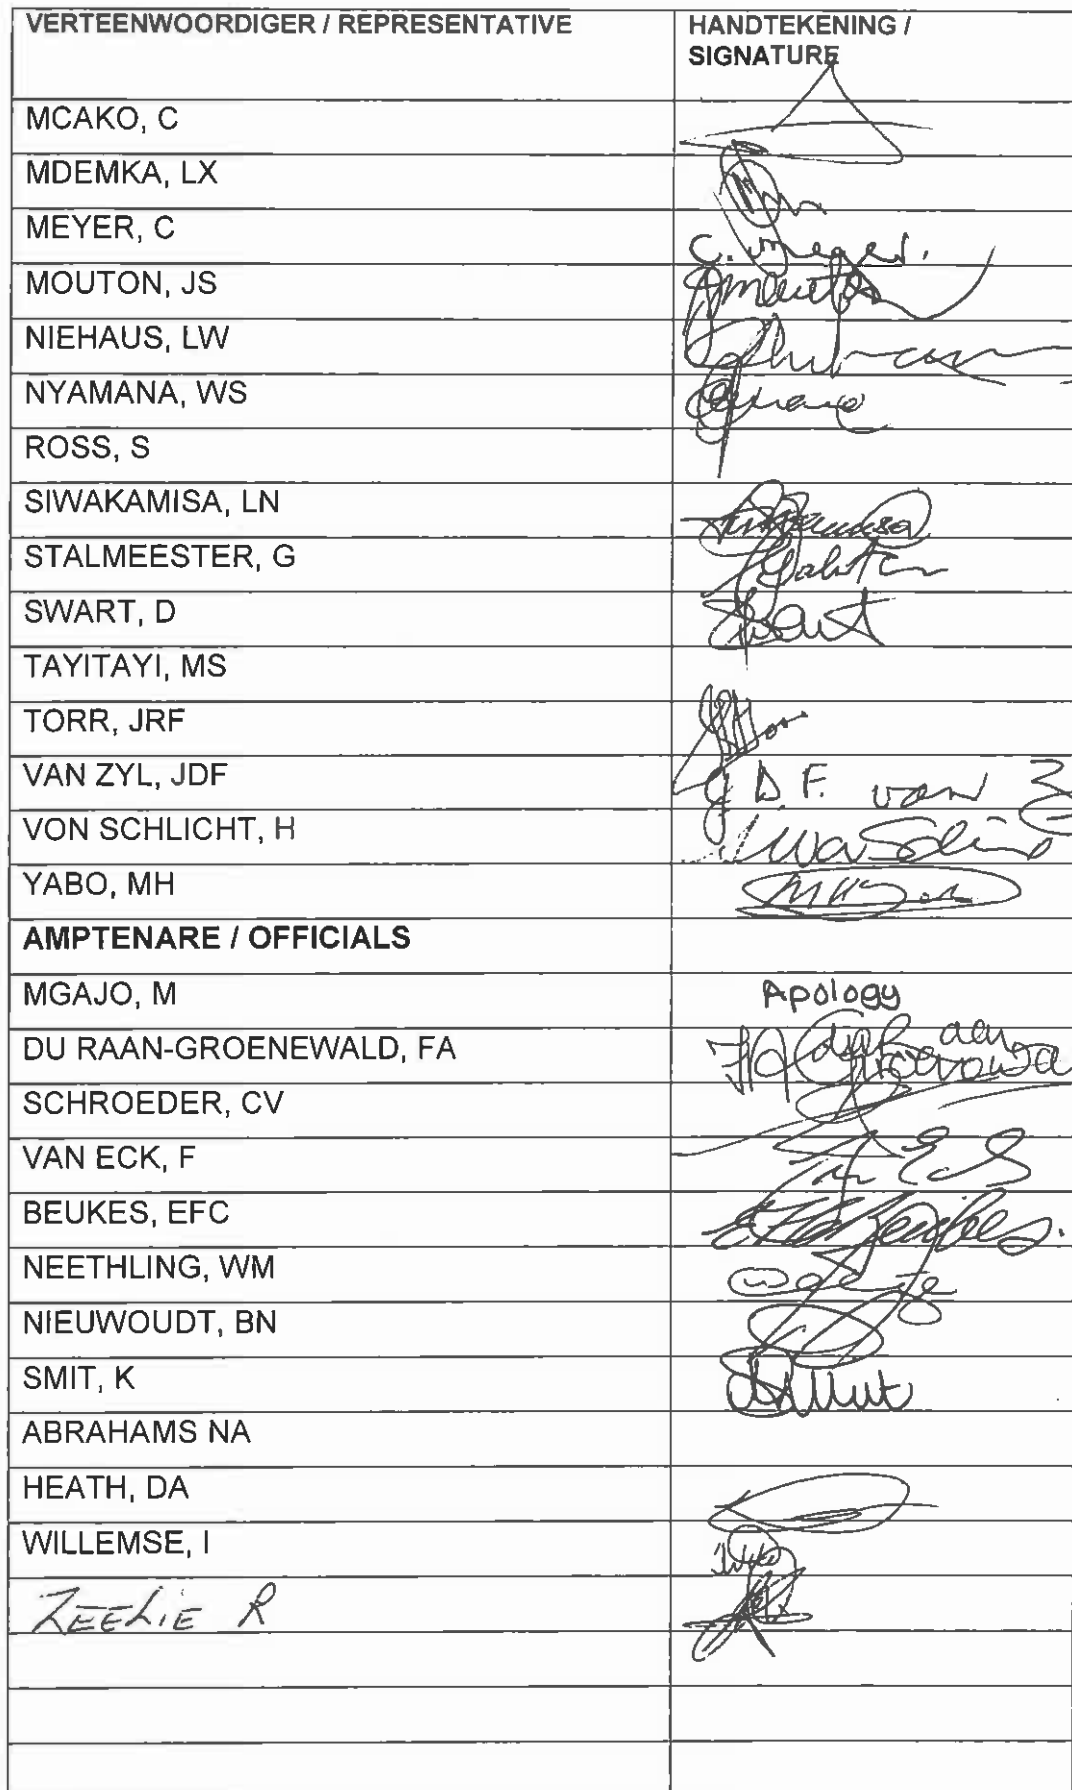 VERTEENWOORDIGER / REPRESENTATIVE HANDTEKENING /
SIGNATURE
MCAKO, C
MDEMKA, LX
MEYER, C C. Meyer.
MOUTON, JS JMouton
NIEHAUS, LW
NYAMANA, WS
ROSS, S
SIWAKAMISA, LN
STALMEESTER, G
SWART, D Swart
TAYITAYI, MS
TORR, JRF
VAN ZYL, JDF J D. F. van Z
VON SCHLICHT, H
YABO, MH
AMPTENARE / OFFICIALS
MGAJO, M Apology
DU RAAN-GROENEWALD, FA
SCHROEDER, CV
VAN ECK, F
BEUKES, EFC Beukes.
NEETHLING, WM
NIEUWOUDT, BN
SMIT, K
ABRAHAMS NA
HEATH, DA
WILLEMSE, I
ZEELIE R